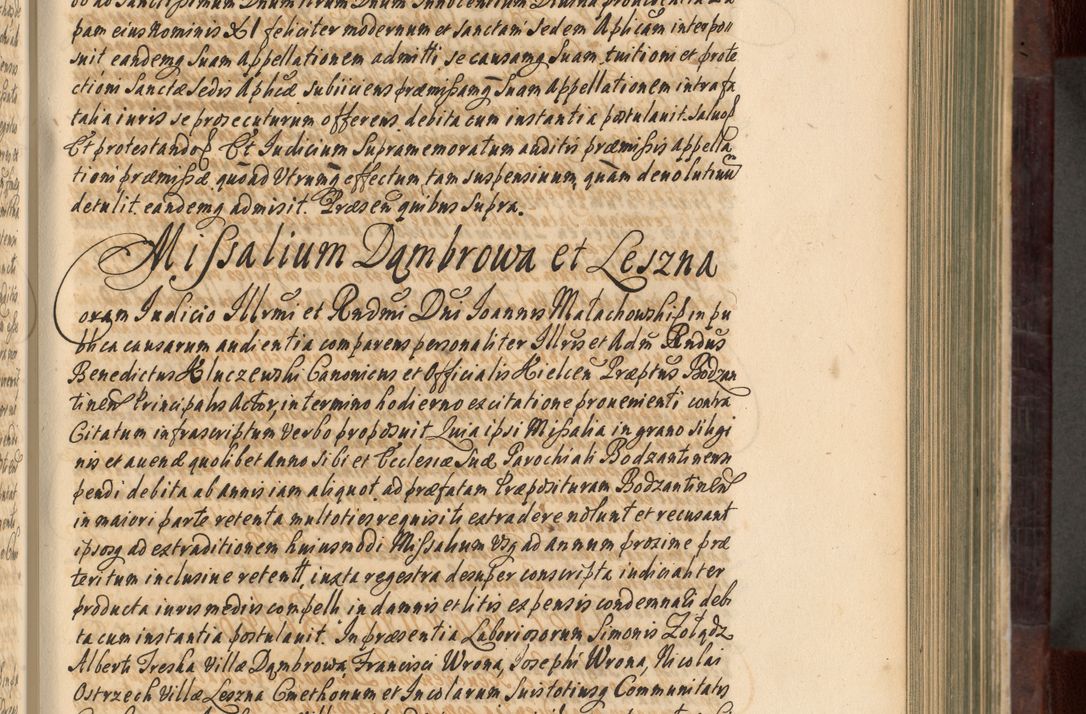 pam eius Nominis XI feliciter modernum et sanctam Sedem Aplicam interpo
suit eandemq Suam Appellationem admitti, se causamq Suam tuitioni et prote
ctioni Sanctæ Sedis Aplicæ subiiciens præmissamq Suam Appellationem intra fa
talia iuris se prosecuturum offerens debita cum instantia postulauit. Saluoq
Et protestandoq Et Iudicium Supramemoratum auditis præmissis appella
tioni præmissæ quoad Utrumq effectum, tam suspensiuum, quam deuolutiuum
detulit, eandemq admisit. Præsen quibus Supra.
Missalium Dąmbrowa et Leszna
Coram Iudicio Illrmi et Rndmi Dni Ioannis Małachowski in pu
blica causarum audientia comparens personaliter Illris et Adm Rndus
Benedictus Kluczewski Canonicus et Officialis Kielcen Præptus Bodzan
tinen Principalis Actor, in termino hodierno ex citatione prouenienti contra
Citatum infrascriptum Verbo proposuit Quia ipsi Missalia in grano siligi
nis et auenæ quolibet Anno Sibi et Ecclesiæ Suæ Parochiali Bodzantinensi
pendi debita ab annis iam aliquot, ad præfatam Præposituram Bodzantinen
in maiori parte retenta multoties requisiti extradere nolunt et recusant
ipsosq ad extraditionem huiusmodi Missalium Usq ad annum proxime præ
teritum inclusiue retent, iuxta regestra desuper conscripta iudicialiter
producta iuris medis compelli, in damnis et litis expensis condemnari debi
ta cum instantia postulauit. In præsentia Laboriosorum Simonis Żołądz
Alberti Treska Villæ Dąmbrowa, Francisci Wrona, Josephi Wrona, Nicolai
Ostrzech Villæ Leszna Cmethonum et Incolarum Suis totiusq Communitatis